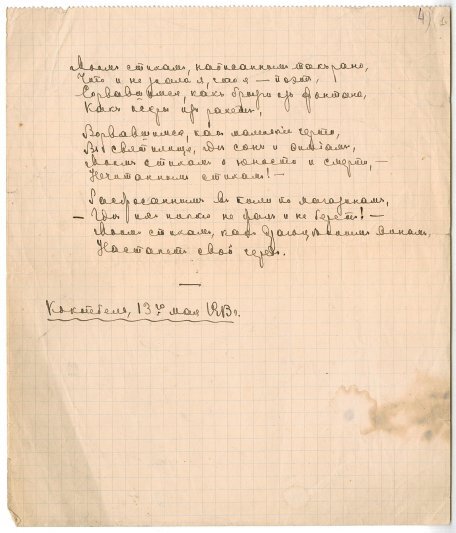 4)
Моимъ стихамъ, написаннымъ такъ рано,
Что и не знала я, что я — поэтъ,
Сорвавшимся, какъ брызги изъ фонтана,
Какъ искры изъ ракетъ,
Ворвавшимся, какъ маленькіе черти,
Въ святилище, гдѣ сонъ и ѳиміамъ,
Моимъ стихамъ о юности и смерти, —
Нечитаннымъ стихамъ! —
Разбросаннымъ въ пыли по магазинамъ,
— Гдѣ ихъ никто не бралъ и не беретъ! —
Моимъ стихамъ, какъ драгоцѣннымъ винамъ,
Настанетъ свой чередъ.
Коктебель, 13го мая 1913г.